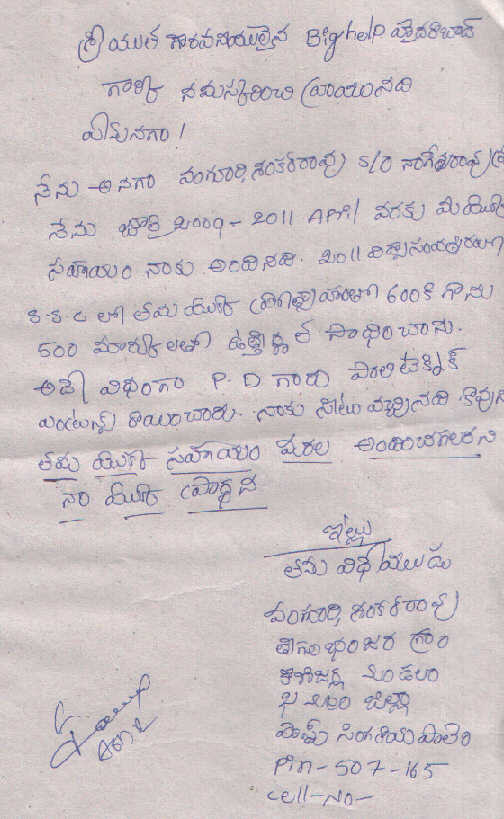 శ్రీయుత గౌరవనీయులైన Bighelp హైదరాబాద్
గారికి నమస్కరించి వ్రాయునది
ఏమనగా!
నేను అనగా వంగూరి శంకరరావు S/o నాగేశ్వరరావు
నేను 2009 - 2011 April వరకు మీ యొక్క
సహాయం నాకు అందినది. 2011 విద్యాసంవత్సరము
S.S.C లో తమ యొక్క ప్రోత్సాహంతో 600 కి గాను
500 మార్కులతో ఉత్తీర్ణత సాధించాను.
అదే విధంగా P.D గారు పాలిటెక్నిక్
ఎంట్రన్స్ రాయించారు. నాకు సీటు వచ్చినది కావున
తమ యొక్క సహాయం మరల అందించగలరని
నా యొక్క ప్రార్థన
ఇట్లు
తమ విధేయుడు
వంగూరి శంకరరావు
గ్రాం
మండలం
ఖమ్మం జిల్లా
పోస్ట్
Pin - 507 - 165
Cell - No -